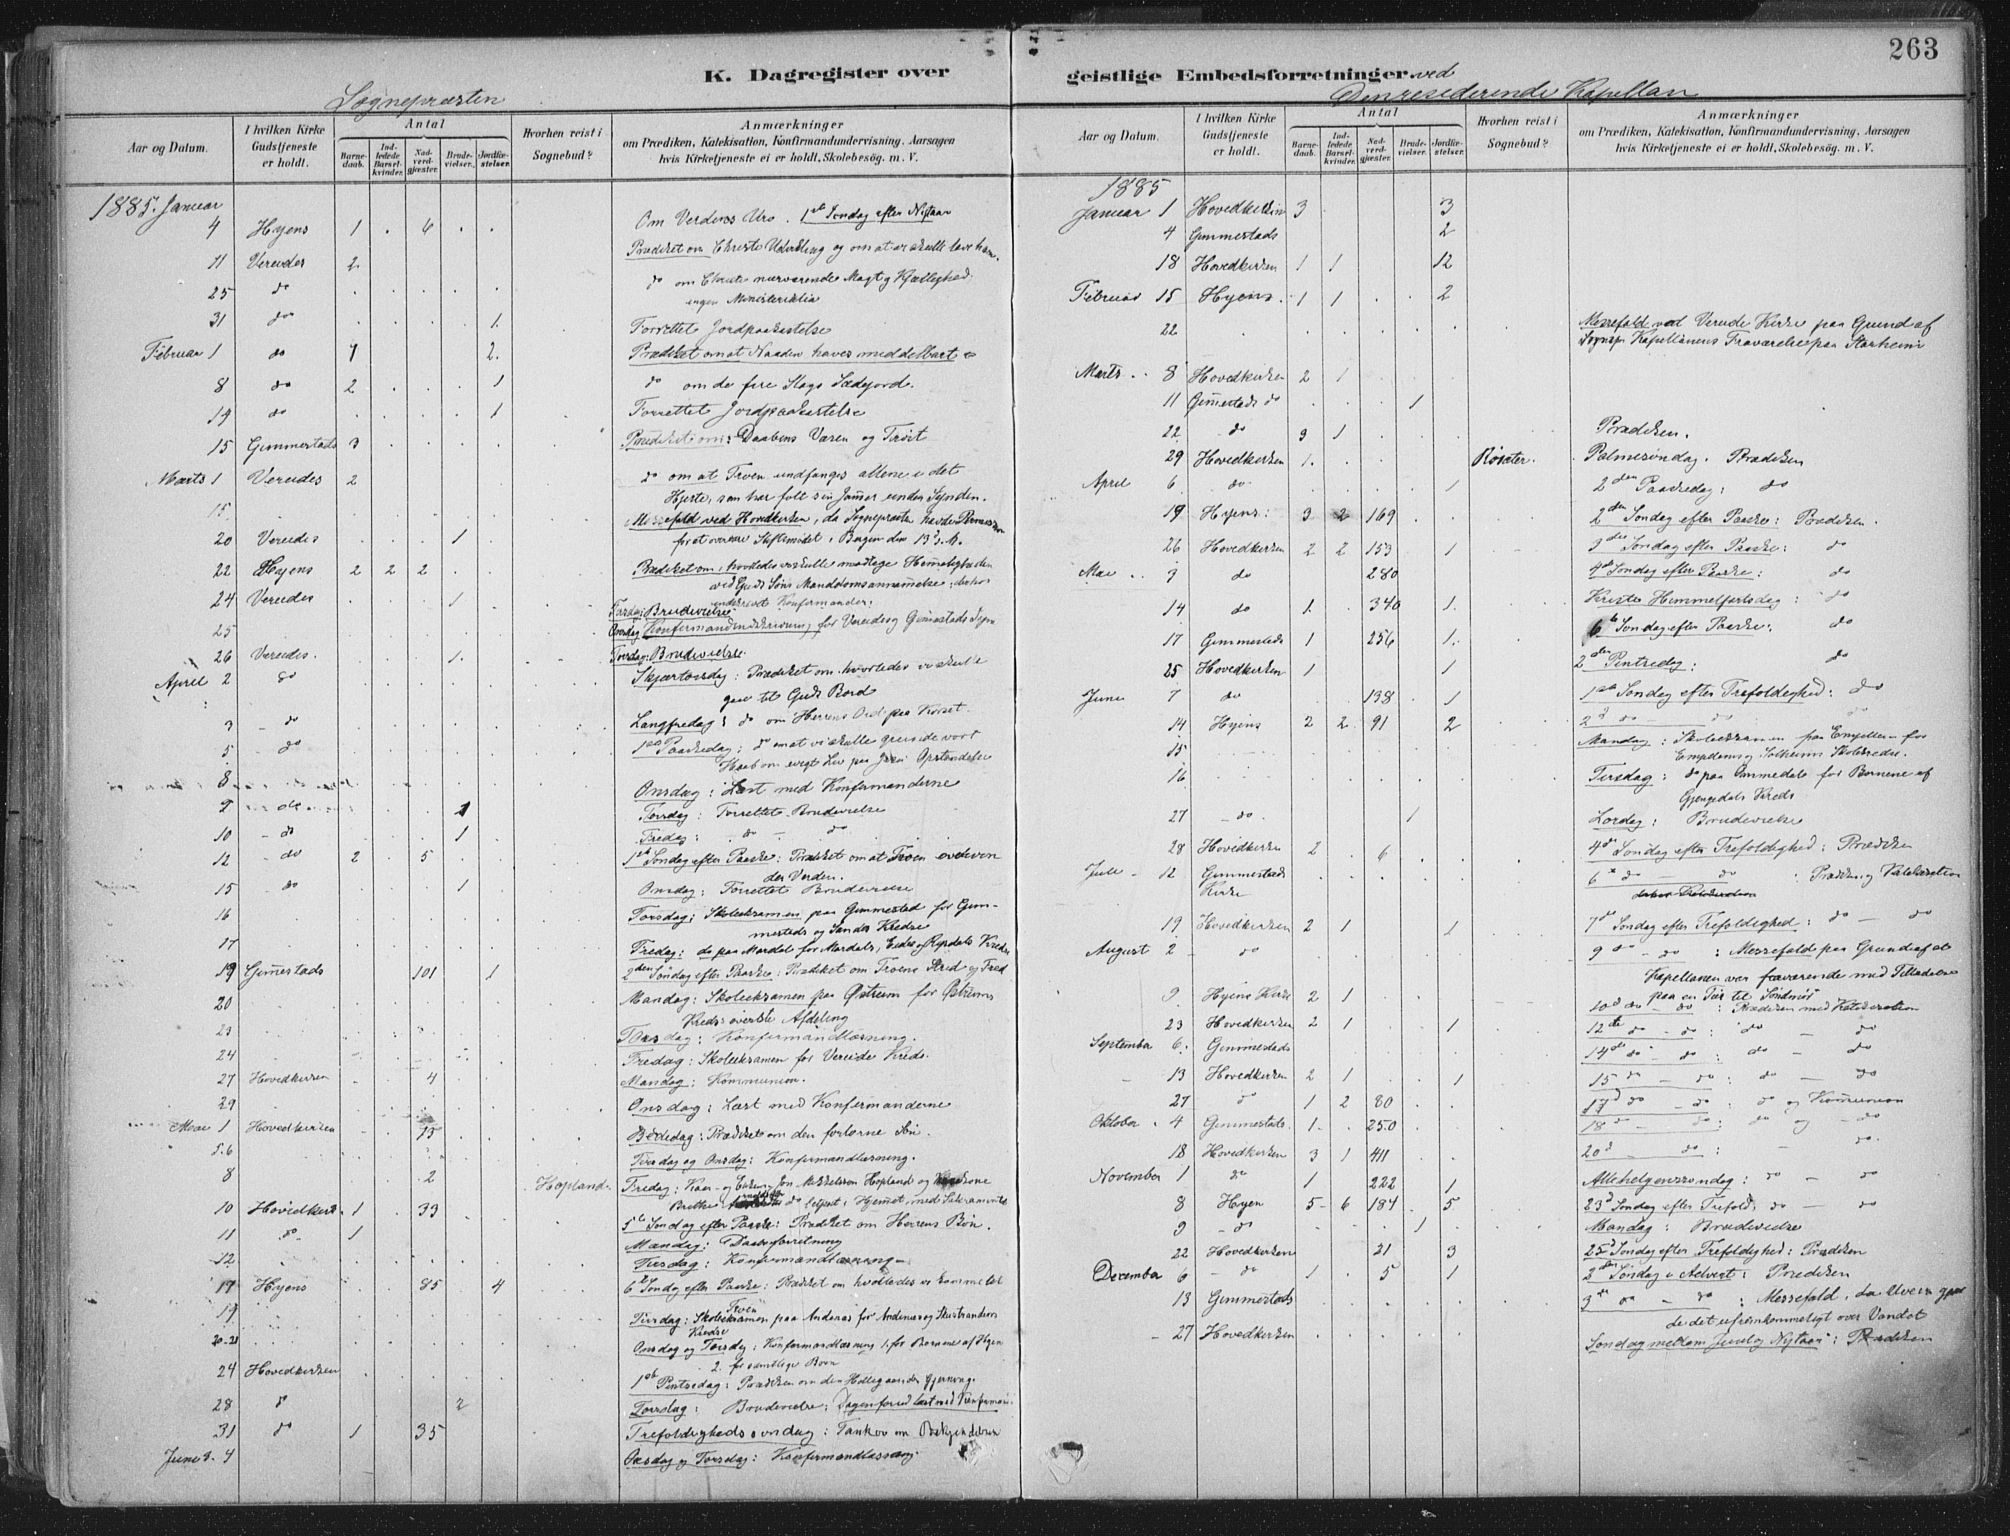 263
K. Dagregister over
Sognepræsten
Aar og Datum.
I hvilken Kirke Gudstjeneste er holdt.
Antal
Barnedaab.
Indledede Barselkvinder.
Nadverdgjæster.
Brudevielser.
Jordfæstelser.
Hvorhen reist i Sognebud?
Anmærkninger
om Prædiken, Katekisation, Konfirmandundervisning, Aarsagen
hvis Kirketjeneste ei er holdt, Skolebesøg. m. V.
1885. Januar
4 Hyens 1 . 6 . . Om Verdens Uro. 1ste Søndag efter Nytaar
11 Vereides 2 Prædiket om Christi Udvikling og om at
25 do do om Christi nærværende Magt og Kjærlighed
ingen Ministerialia
31 do 1. Forrettet Jordpaakastelse
Februar 1 do 2. Prædiket om at Naaden haves
8 do 2 1 do om de fire Slags Sædejord.
19 do 1 Forrettet Jordpaakastelse
15 Gimmestads 3 Prædiket om: Daabens Væsen og Trøst
Marts 1 Vereides 2 do om at Troen undfanges allene i det
Hjerte, som har følt sin Jammer under Synden.
15 Messefald ved Hovedkirken, da Sognepræsten havde
20 Vereides 1 Stiftsmødet i Bergen den 13 d. M.
22 Hyens 2 2 2 Prædiket om, hvorledes vi skulle modtage Hemmeligheden
ved Guds Søns
undervist Konfirmander.
24 Vereides 1 Tirsdag: Brudevielse
25 Onsdag for Vereides og Gimmestads Sogn
26 Vereides. 1. Torsdag: Brudevielse.
April 2 do Skjærtorsdag: Prædiket om, hvorledes vi skulle
gaa til Guds Bord
3 do Langfredag: do om Herrens Ord paa Korset.
5 do 1ste Paaskedag: do om at vi skulle grunde vort
Haab om evigt Liv paa Jesu Opstandelse
8 Onsdag: Læst med Konfirmanderne
9 do 1 Torsdag: Forrettet Brudevielse
10 do 1 Fredag: do - do
12 do 2 . 5 1ste Søndag efter Paaske: Prædiket om at Troen
der Verden.
15 do 1 Onsdag: Forrettet Brudevielse
16 Torsdag: Skoleexamen paa Gimmestad for Gim-
mestads og Sandes Kredse
17 Fredag: do paa Mardal for Mardals, Eides og Rygdals Kredse
19 Gimestads 101 1 2den Søndag efter Paaske: Prædiket om Troens Strid og Fred
20 Mandag: Skoleexamen paa Østrem for Østrems
Kreds øverste Afdeling
23 Torsdag: Konfirmandlæsning.
24 Fredag: Skoleexamen for Vereide Kreds.
27 Hovedkirken 4 Mandag: Kommunion.
29 Onsdag: Læst med Konfirmanderne
Mai 1 Hovedkirken 13 Bededag: Prædiket om den forlorne Søn.
5.6 Tirsdag og Onsdag: Konfirmandlæsning.
8 2 Hopland. Fredag: Hopland og
i Hjemmet med Sakramentet
10 Hovedkirk. 1 . 33 5te Søndag efter Paaske: Prædiket om Herrens Bøn.
11 do 1 Mandag: Daabsforretning
12 Tirsdag: Konfirmandlæsning
17 Hyens 85 4 6te Søndag efter Paaske: Prædiket om hvorledes vi komme til
Troen
19 Tirsdag: Skoleexamen paa Andenæs for Andenæs og
Kredse
20-21 Onsdag og Torsdag: Konfirmandlæsning 1. for Børnene af Hyen
2. for samtlige Børn
24 Hovedkirken 1ste Pintsedag: Prædiken om den Helligaands Gjerning.
28 do 2 Torsdag: Brudevielse; Dagen forud læst med Konfirman.
31 do 1 35 Trefoldigheds søndag: Tanker om
Juni 3. 4 Onsdag og Torsdag: Konfirmandlæsning
geistlige Embedsforretninger ved
Den residerende Kapellan
Aar og Datum.
I hvilken Kirke Gudstjeneste er holdt.
Antal
Barnedaab.
Indledede Barselkvinder.
Nadverdgjæster.
Brudevielser.
Jordfæstelser.
Hvorhen reist i Sognebud?
Anmærkninger
om Prædiken, Katekisation, Konfirmandundervisning, Aarsagen
hvis Kirketjeneste ei er holdt, Skolebesøg. m. V.
1885
Januar 1 Hovedkirken 3 3
4 Gimmestads 2
18 Hovedkirken 1 1 12
Februar 15 Hyens 1 1 . . 2
22 Messefald ved Vereide Kirke paa Grund af
Kapellanens Fraværelse paa Starheim
Marts 8 Hovedkirken 2 1
11 Gimestads do 1
22 do 3 1 Prædiken.
29 Hovedkirken 1. Palmesøndag. Prædiken
April 6 do 1 2den Paaskedag: do
19 Hyens: 3 2 169 2den Søndag efter Paaske: Prædiken.
26 Hovedkirken 2 2 153 1 3die Søndag efter Paaske: do
Mai 3 do 280 4de Søndag efter Paaske: do
14 do 1. 340 1. Kristi Himmelfartsdag: do
17 Gimmestads 1 256 1. 6te Søndag efter Paaske: do
25 Hovedkirken 1 1 2den Pintsedag: do
Juni 7 do 138 1 1ste Søndag efter Trefoldighed: do
14 Hyens 2 2 91 2 2d do - do
15 Mandag: Skoleexamen paa for
Solheims Skolekredse.
16 Tirsdag: do paa Ommedal for Børnene af
Gjengedals Kreds
27 do. 1 Lørdag: Brudevielse
28 Hovedkirken 2 . 6 4de Søndag efter Trefoldighed: Prædiken
Juli 12 Gimmestads Kirke 6te do - do: Prædiken og Katekisation
19 Hovedkirken 2 1 1 7de Søndag efter Trefoldighed: do - do
August 2 do 9 do - do: Messefald paa Grund af at
Kapellanen var fraværende med Tilladelse
paa en Tur til Søndmør
9 Hyens Kirke 2 1 10d do - do: Prædiken med Katekisation
23 Hovedkirken 2 1 1 12te do - do: do - do
September 6. Gimmestads 14de do - do: do - do
13 Hovedkirken 2 1 1 15 do - do: do - do
27 do 1 2 80 17d do - do: do og Kommunion
Oktober 4 Gimmestads. 1. 250 18 do - do: do og do
18 Hovedkirken 3 1 411 20d do: - do.
November 1 do 1 222 1 Allehelgenssøndag: do - do
8 Hyen 5 6 184 5 23d Søndag efter Trefold: do - do
9 do 1 Mandag: Brudevielse
22 Hovedkirken 21 3 25d Søndag efter Trefoldighed: Prædiken
December 6 do 1 . 5 1 2den Søndag i Advent: Prædiken
13 Gimmestads 3die do - do: Messefald, da Uveir gjor
de det ufremkommeligt over Vandet
27 Hovedkirken Søndag mellem Juul og Nytaar: Prædiken